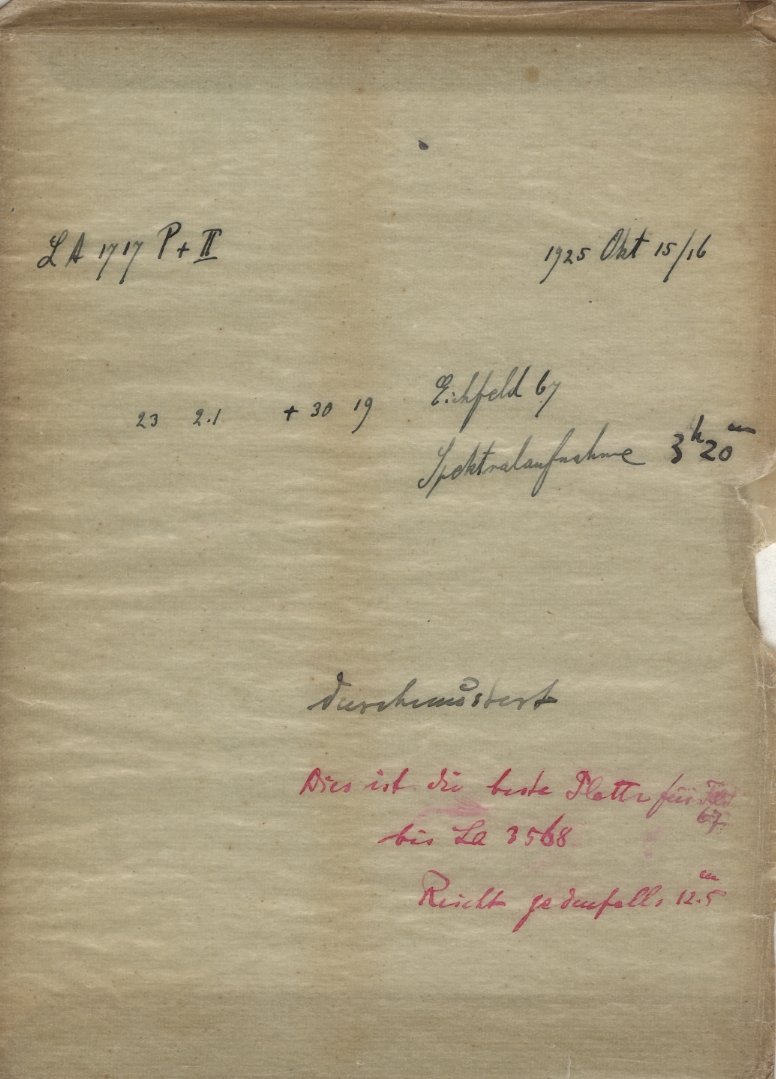 LA 1717 P + II 1925 Okt 15/16
23 2.1 + 30 19 Eichfeld 67
Spektralaufnahme 3h 20m
durchmustert
Dies ist die beste Platte für Feld
67
bis La 3568
Reicht jedenfalls 12.5m